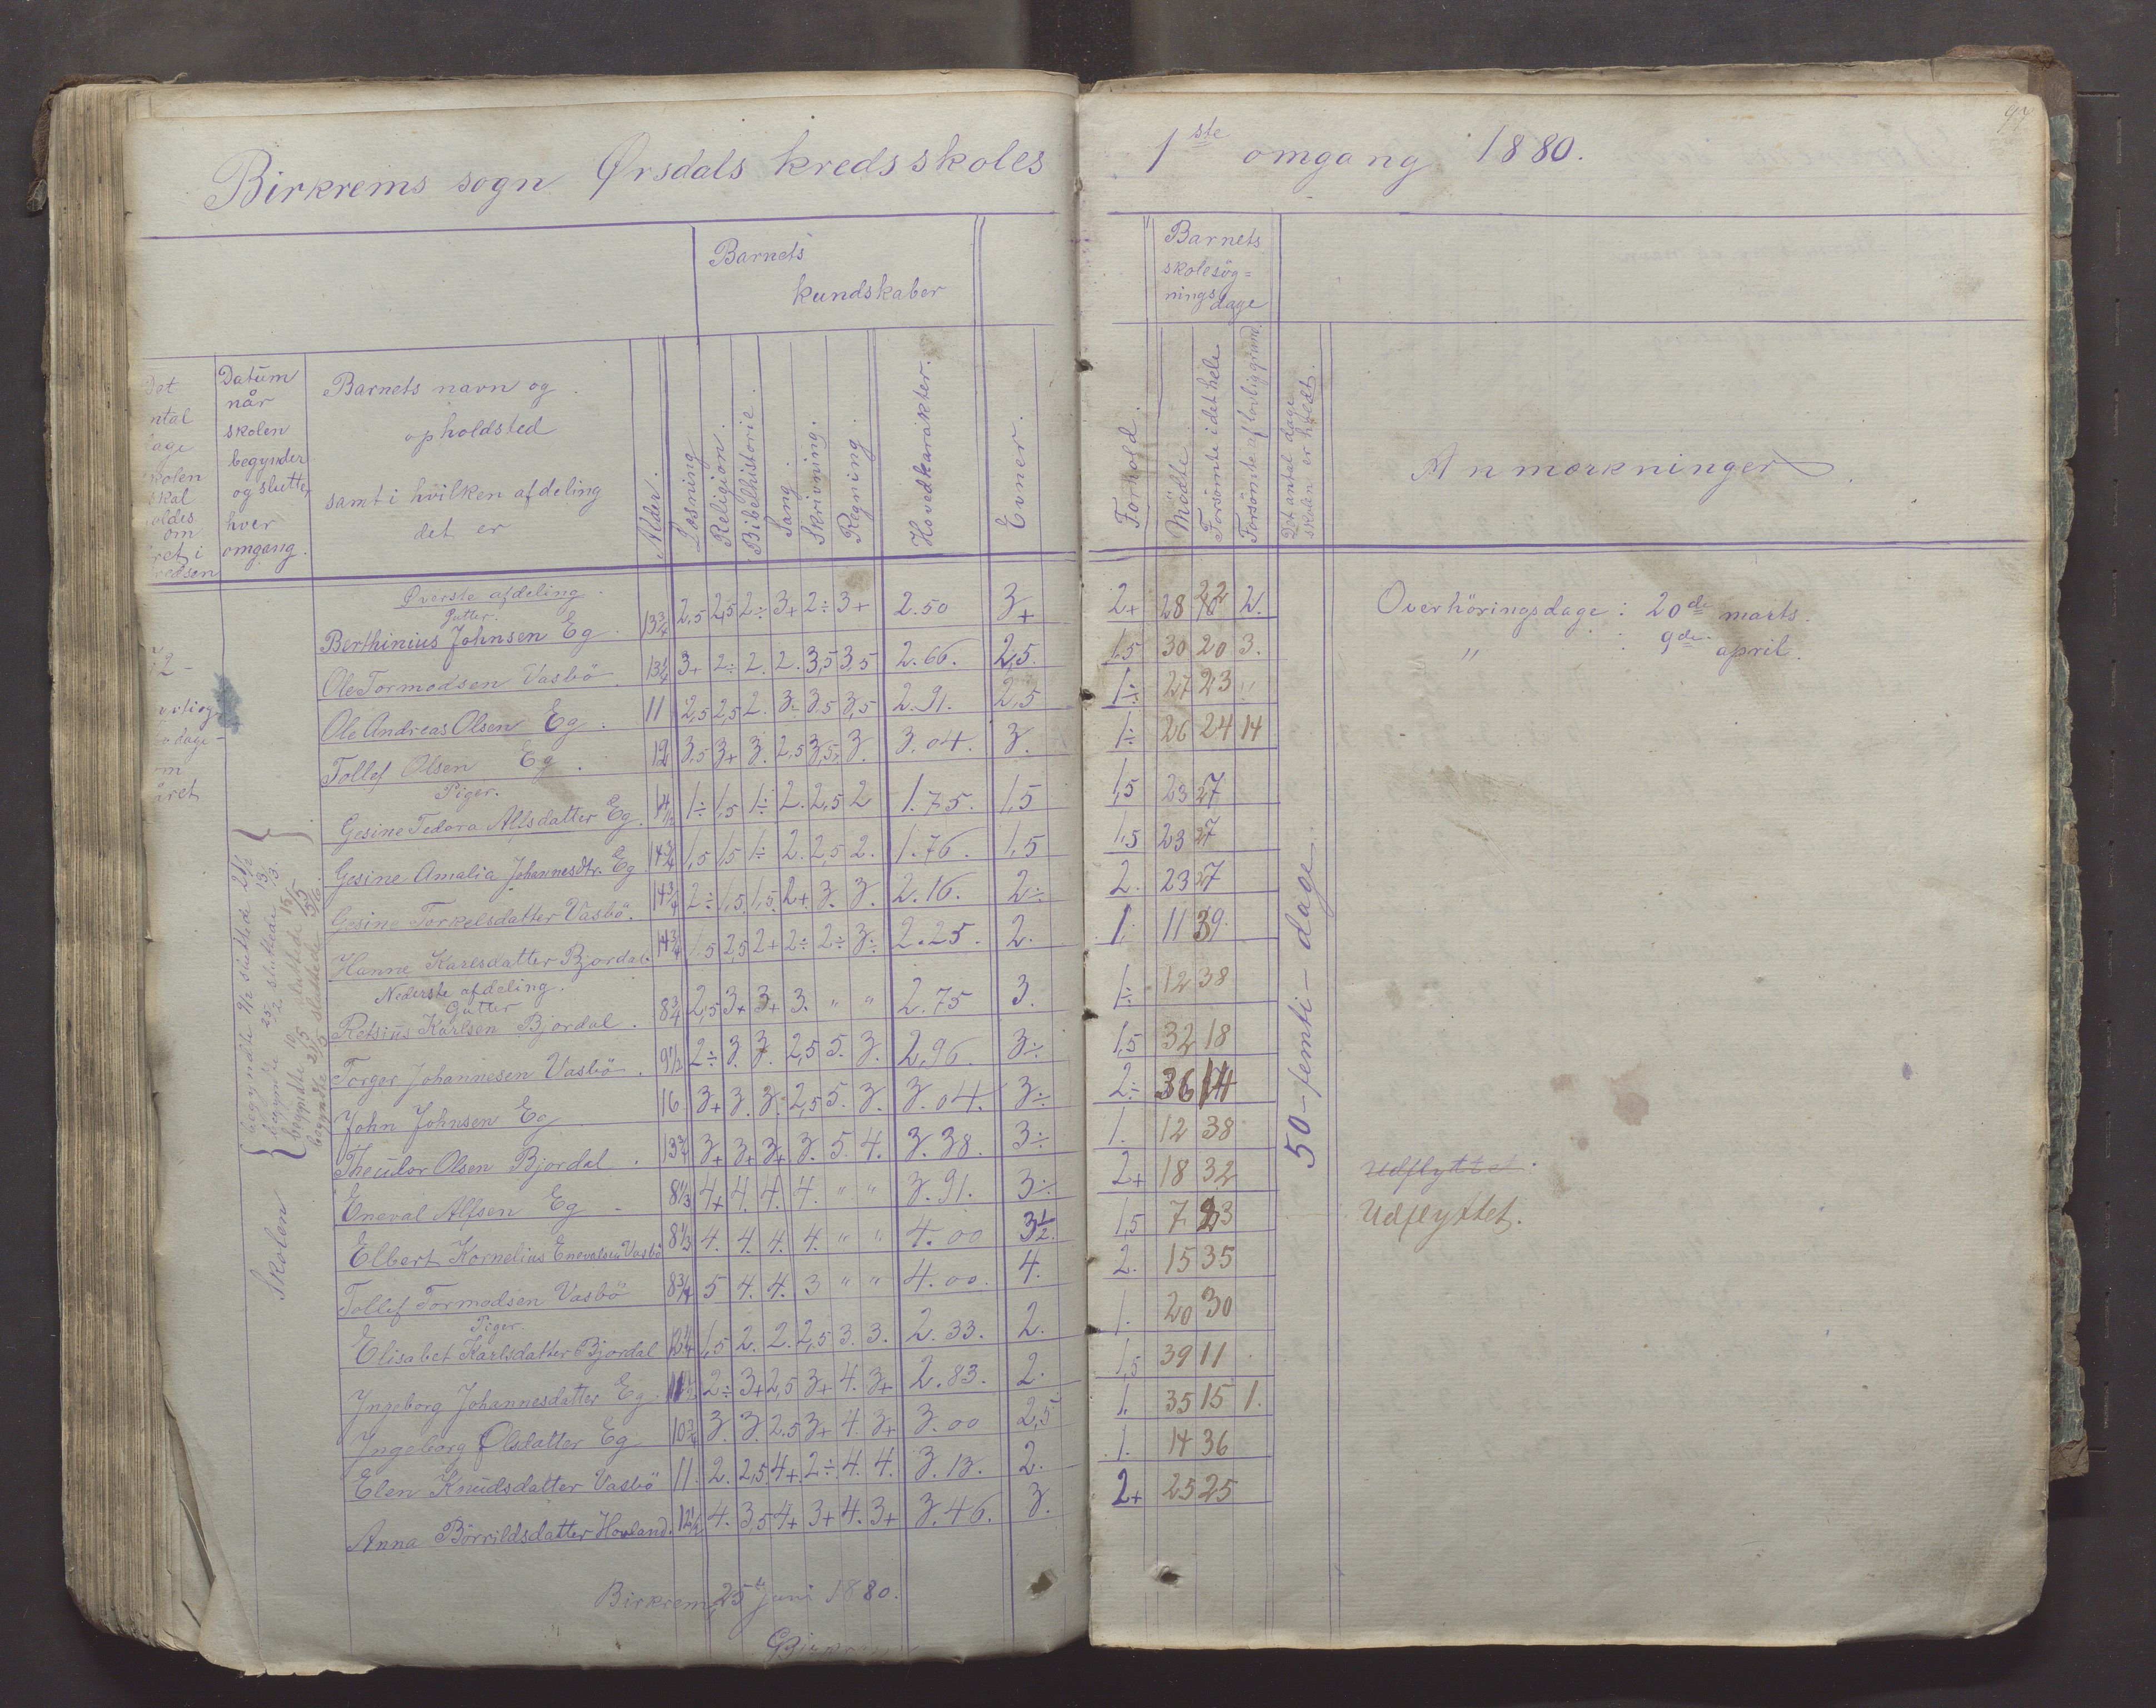 Birkrems sogn Ørsdals kredsskoles
Barnets
kundskaber
Datum
når
skolen
begynder
og slutter
hver
omgang.
Barnets navn og
opholdsted
samt i hvilken afdeling
det er
Alder.
Læsning
Religion.
Bibelhistorie.
Sang.
Skrivning.
Regning.
Hovedkarakter.
Evner.
Øverste afdeling.
Gutter.
Berthinius Johnsen Eg. 13 3/4 2,5 2,5 2÷ 3+ 2÷ 3+ 2.50 3+
Ole Tormodsen Vasbö. 13 1/4 3+ 2÷ 2. 2. 3,5 3,5 2.66. 2,5.
Ole Andreas Olsen Eg. 11 2,5 2,5 2. 3. 3.5 3,5 2.91. 2,5
Tollef Olsen Eg. 12 3,5 3+ 3. 2,5 3,5 3. 3.04. 3.
Piger.
Gesine Tedora Alfsdatter Eg. 1÷ 1,5 1÷ 2. 2,5 2 1.75. 1,5
Gesine Amalia Johannesdtr. Eg. 14 3/4 1,5 1,5 1÷ 2. 2,5 2. 1.76. 1,5
Gesine Torkelsdatter Vasbö. 14 3/4 2÷ 1,5 1,5 2+ 3. 3. 2.16. 2÷
Hanne Karlsdatter Bjordal. 14 3/4 1.5 2,5 2+ 2÷ 2÷ 3÷ 2.25. 2.
Nederste afdeling.
Gutter
Retsius Karlsen Bjordal. 8 3/4 2,5 3+ 3+ 3. " " 2.75 3.
Torger Johannesen Vasbö. 9 1/2 2÷ 3. 3. 2,5 5. 3. 2,96. 3÷
John Johnsen Eg 16 3+ 3. 3. 2,5 5. 3. 3.04. 3÷
Theudor Olsen Bjordal. 13 3/4 3+ 3+ 3+ 3. 5. 4. 3.38. 3÷
Eneval Alfsen Eg 8 1/3 4+ 4. 4. 4. " " 3.91. 3÷
Elbert Kornelius Enevalsen Vasbö 8 1/3 4. 4. 4. 4. " " 4.00 3 1/2.
Tollef Tormodsen Vasbö 8 3/4 5 4. 4. 3 " " 4.00. 4.
Piger.
Elisabet Karlsdatter Bjordal 1,5 2. 2. 2,5 3. 3. 2.33. 2.
Ingeborg Johannesdatter Eg. 11 1/2 2÷ 3+ 2,5 3+ 4. 3+ 2.83. 2.
Ingeborg Olsdatter Eg 10 3/4 3. 3. 2.5 3+ 4. 3+ 3.00 2,5
Elen Knudsdatter Vasbö 11. 2. 2,5 4+ 2÷ 4. 4. 3.13. 2.
Anna Börrildsdatter Hovland. 12 1/2 4. 3,5 4+ 3+ 4. 3+ 3.46. 3.
Skolen
Birkrem, 25 Juni 1880.
1ste omgang 1880.
Barnets
skolesøg=
nings
dage
Forhold.
Mödte.
Forsömte i det hele
Forsömte af lovlig grund.
Det antal dage
skolen er holdt.
Anmærkninger
2+ 28 22 2.
1.5 30 20 3.
1÷ 27 23 "
1÷ 26 24 14
1,5 23 27
1,5 23 27
2. 23 27
1. 11 39.
1÷ 12 38
1,5 32 18
2÷ 36 14
1. 12 38
2+ 18 32
1,5 7. 23
2. 15 35
1. 20 30
1,5 39 11
1. 35 15 1.
1. 14 36
2+ 25 25
50 - femti - dage
Overhöringsdage: 20de marts.
" : 9de april.
Udflyttet.
Udflyttet.